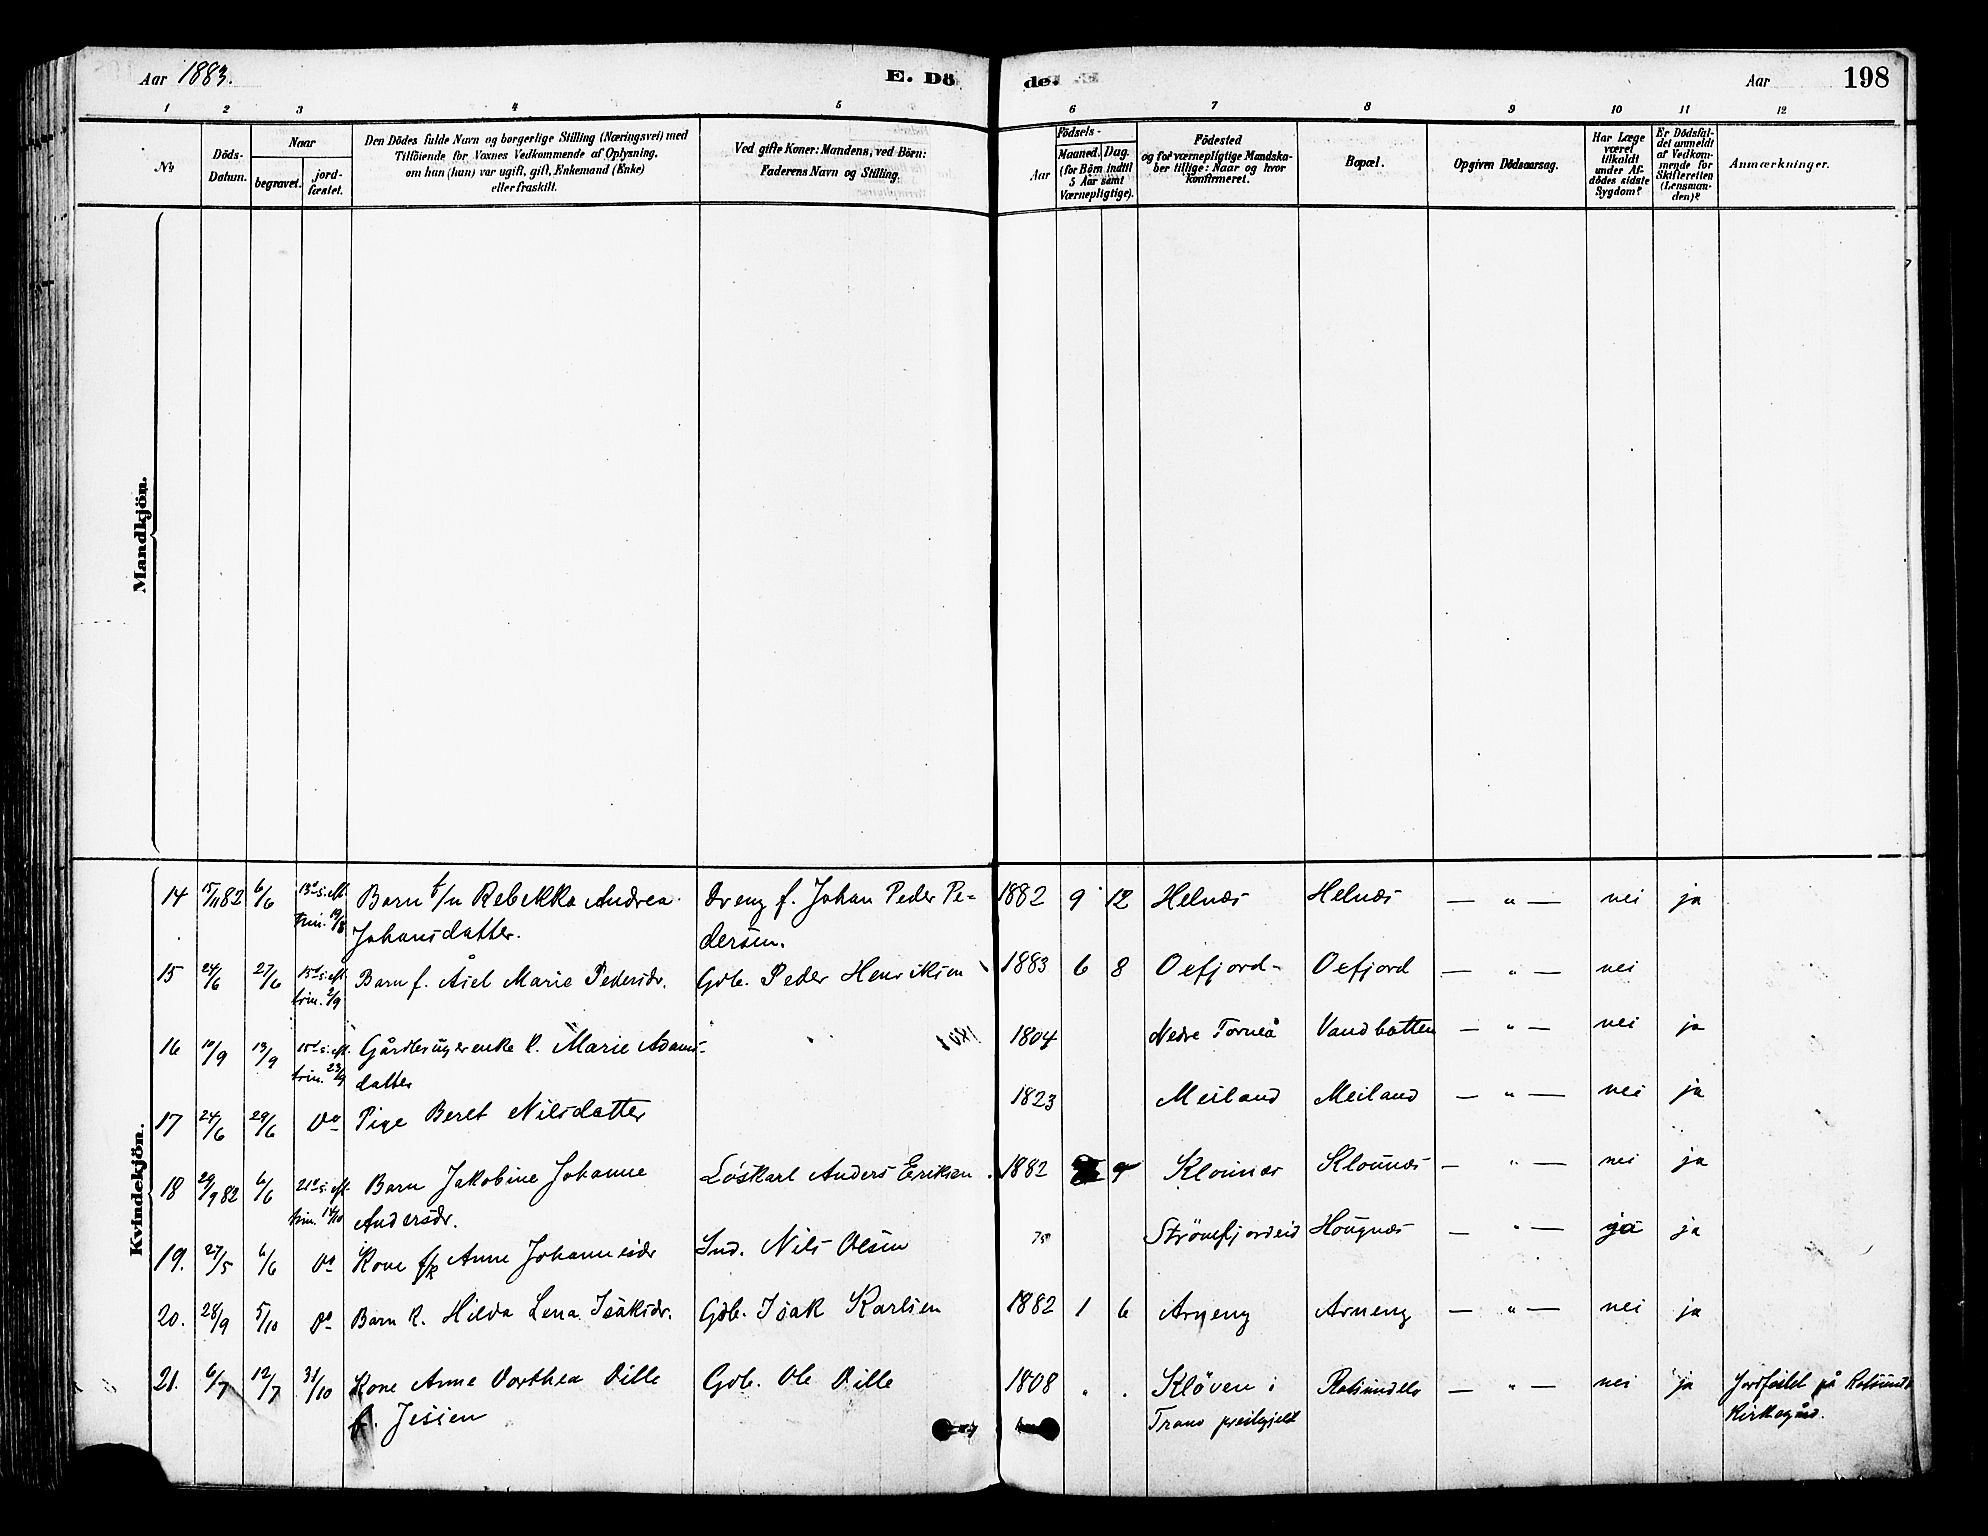 Aar 1883.
E. Dö
de.
Aar
198
1 2 3 4 5 6 7 8 9 10 11 12
No
Döds-
Datum.
Naar
begravet.
jord-
fæstet.
Den Dödes fulde Navn og borgerlige Stilling (Næringsvei) med
Tilföiende for Voxnes Vedkommende af Oplysning,
om han (hun) var ugift, gift, Enkemand (Enke)
eller fraskilt.
Ved gifte Koner: Mandens, ved Börn:
Faderens Navn og Stilling.
Födsels-
Aar
Maaned.
Dag.
(for Börn indtil
5 Aar samt
Værnepligtige).
Födested
og for værnepligtige Mandska-
ber tillige: Naar og hvor
konfirmeret.
Bopæl.
Opgiven Dödsaarsag.
Har Læge
været
tilkaldt
under Af-
dödes sidste
Sygdom?
Er Dödsfal-
det anmeldt
af Vedkom-
mende for
Skifteretten
(Lensman-
den)?
Anmærkninger.
Mandkjön.
Kvindekjön.
14 15/11 82 6/6 Barn Rebekka Andrea Dreng f. Johan Peder Pe- 1882 9 12 Helnæs Helnæs — " — nei ja
trin. 19/8 Johansdatter. dersen.
15 24/6 27/6 Barn f. Åsel Marie Pedersdr. Gdb. Peder Henriksen 1883 6 8 Oxfjord Oxfjord — " — nei
trin. 2/9
16 10/9 13/9 Gårdbrugerenke k. Marie Adams- 1804 Nedre Torneå Vandbotten — " — nei ja
trin. 23/9 datter
17 24/6 29/6 Do Pige Beret Nilsdatter 1823 Meiland Meiland — " — nei ja
18 29/9 82 6/6 Barn Jakobine Johanne Løskarl Anders Eriksen 1882 9 Klounæs Klounæs — " — nei ja
trin. 14/10 Andersdr.
19. 27/5 6/6 Do Kone f/k Anne Johannesdr Ind. Nils Olsen 75 Strömfjordeid Hougnæs — " — ja ja
20. 28/9 5/10 Do Barn k. Hilda Lena Isaksdr. Gdb. Isak Karlsen 1882 1 6 Arneng Arneng — " — nei ja
21. 6/7 12/7 31/10 Kone Anne Dorthea Dille Gdb. Ole Dille 1808 " . Klöven i Rotsundelv — " — nei ja Jordfæstet på Rotsunds
f. Jessen Tranö præstegjeld Kirkegård.